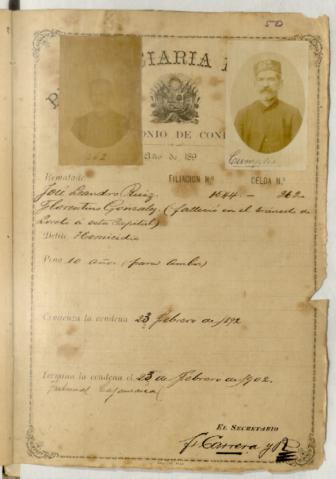 50
CIARIA
262
ONIO DE CON
Año de 189
Cumplió
Rematado
FILIACION N.º CELDA N.º
José Leandro Ruiz 1044. - 262
Florentino Gonzalez (falleció en el tránsito de
Loreto a esta Capital)
Delito Homicidio
Pena 10 años (para ambos)
Comienza la condena 23 Febrero de 1892
Termina la condena el 23 de Febrero de 1902.
Tribunal Cajamarca
EL SECRETARIO
Carrera